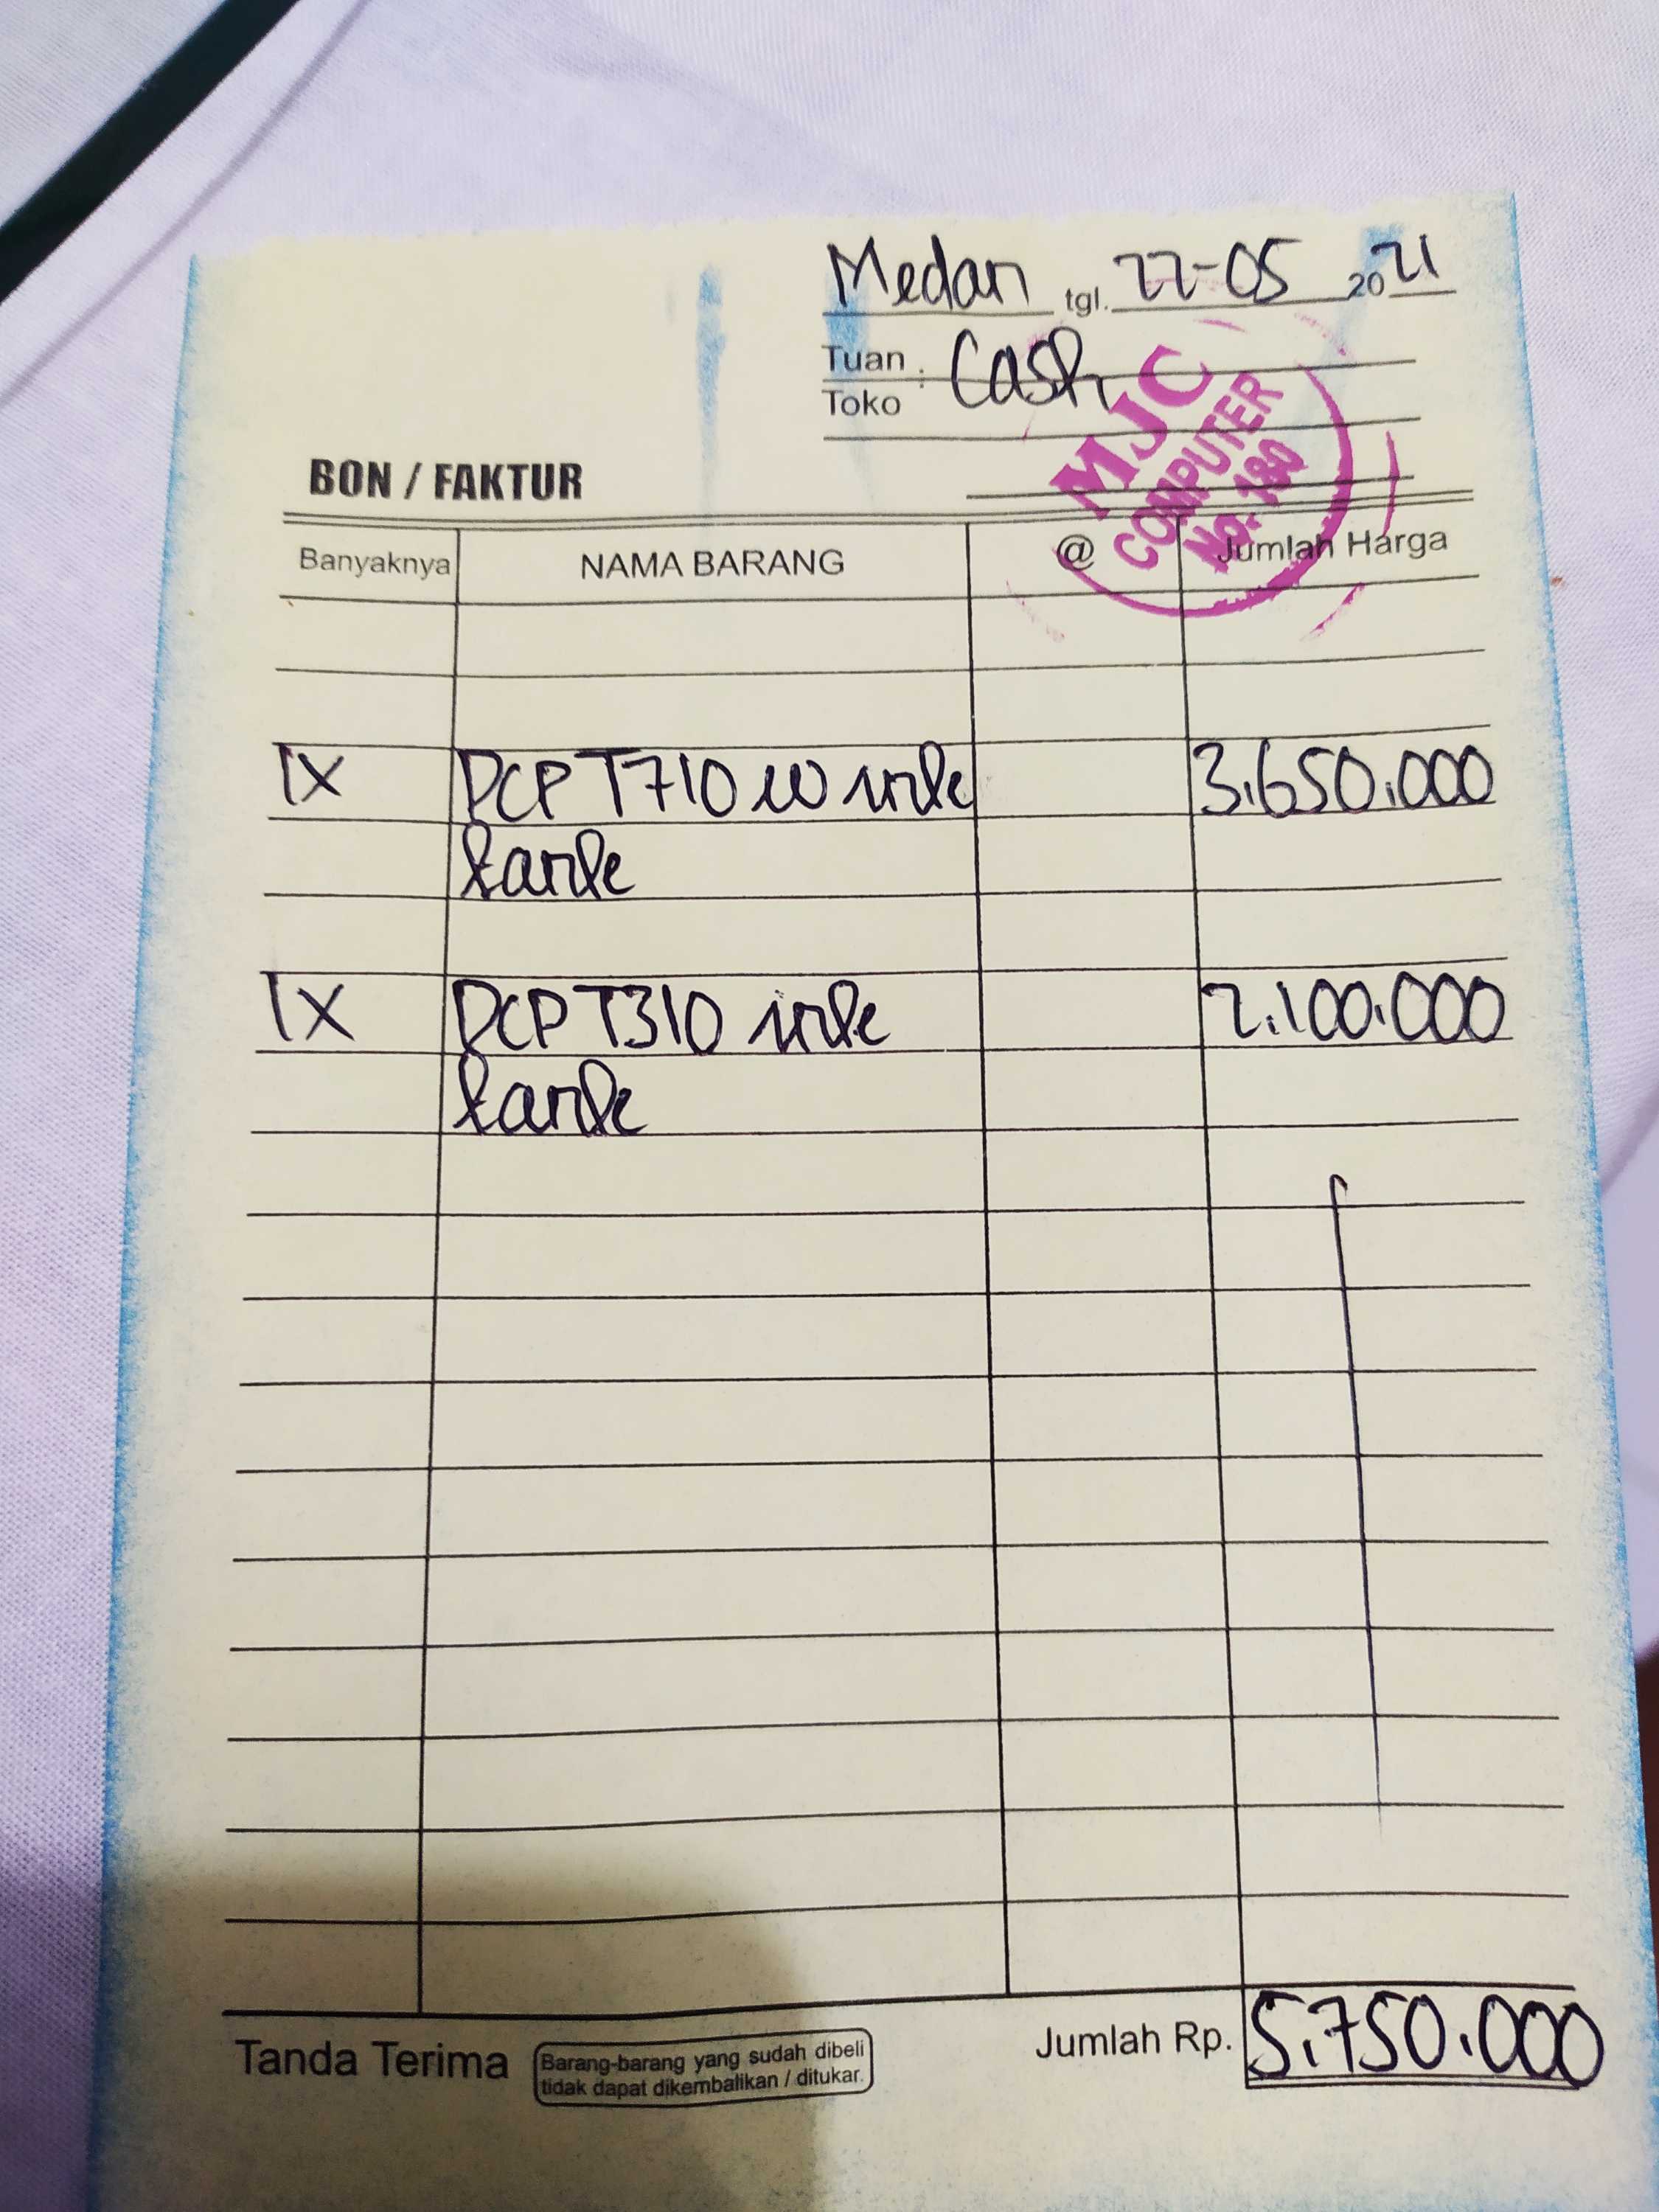 Medan tgl. 22-05 2021
Tuan
Toko : Cash
MJC
COMPUTER
No. 180
BON / FAKTUR
Banyaknya NAMA BARANG @ Jumlah Harga
1X DCP T710 W ink 3.650.000
tank
1X DCP T310 ink 2.100.000
tank
Jumlah Rp. 5.750.000
Tanda Terima
Barang-barang yang sudah dibeli
tidak dapat dikembalikan / ditukar.